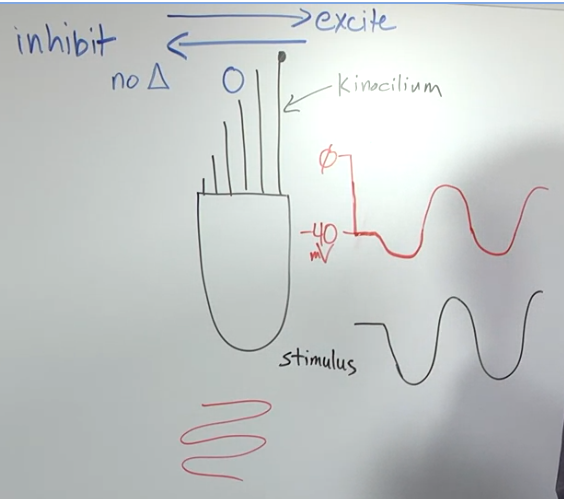 excite
inhibit
no Δ O
Kinocilium
Ø
-40
mV
stimulus